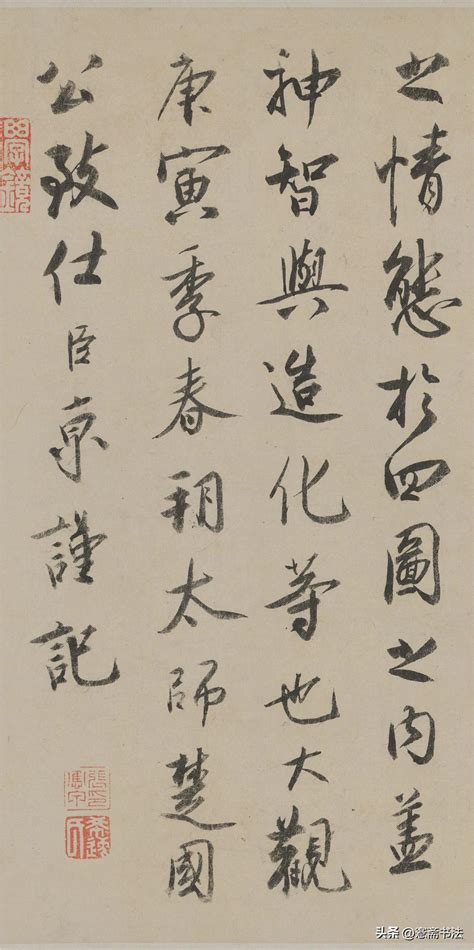 之情態於四圖之内盖
神智與造化等也大觀
庚寅季春朔太師楚國
公致仕臣京謹記
头条@憲斋书法